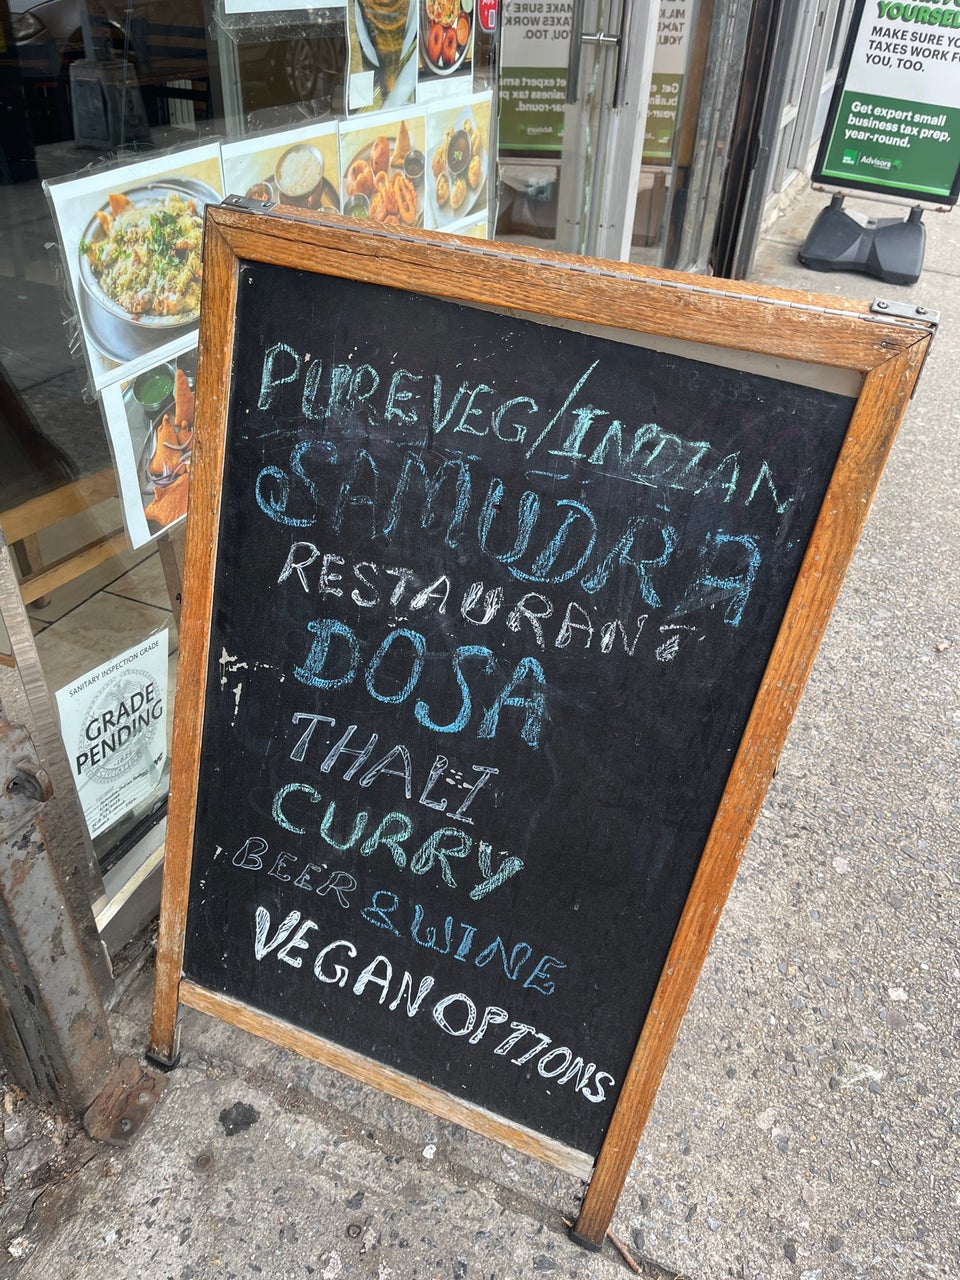 PURE VEG/INDIAN
SAMUDRA
RESTAURANT
DOSA
THALI
CURRY
BEER & WINE
VEGAN OPTIONS
SANITARY INSPECTION GRADE
GRADE
PENDING
MAKE SURE YOU
TAXES WORK
YOU, TOO.
Get expert small
business tax
year-round.
YOURSEL
MAKE SURE YO
TAXES WORK F
YOU, TOO.
Get expert small
business tax prep,
year-round.
Advisors